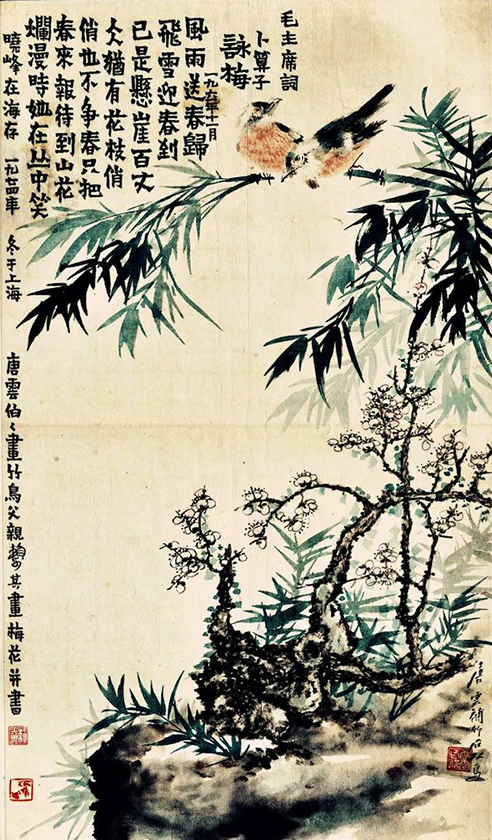 毛主席詞
卜算子
詠梅
風雨送春歸
飛雪迎春到
已是懸崖百丈
仌猶有花枝俏
俏也不争春只把
春來報待到山花
爛漫時她在丛中笑
曉峰在海存 一九七四年 冬于上海
唐雲伯〻畫竹鳥父親其畫梅花并書
唐雲補竹石